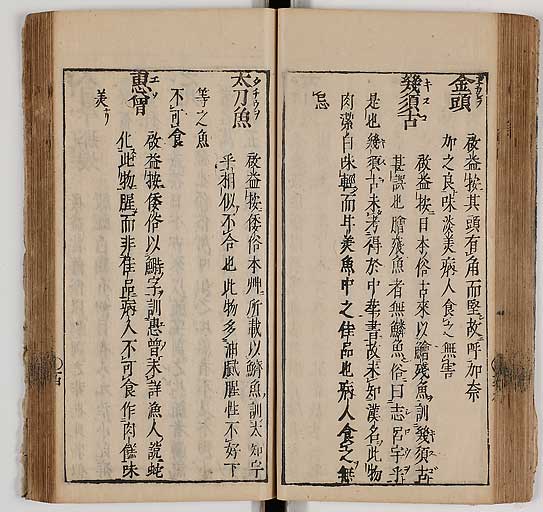 金頭
啟益按其頭有角而堅故呼加奈
加之良味淡美病人食之無害
幾須古
キスコ
啟益按日本俗古來以鱠殘魚訓幾須古
甚誤也膾殘魚者無鱗魚俗曰志呂宇乎
是也幾須古未考得於中華書故未知漢名此物
肉潔白味輕而甘美魚中之佳品也病人食之無
忌
太刀魚
タチウヲ
啟益按倭俗本艸所載以鱭魚訓太知宇
乎相似不合也此物多油膩腥性不好下
等之魚
不可食
惠曾
エソ
啟益按倭俗以鱛字訓惠曾未詳漁人說蛇
化此物腥而非佳品病人不可食作肉餻味
美